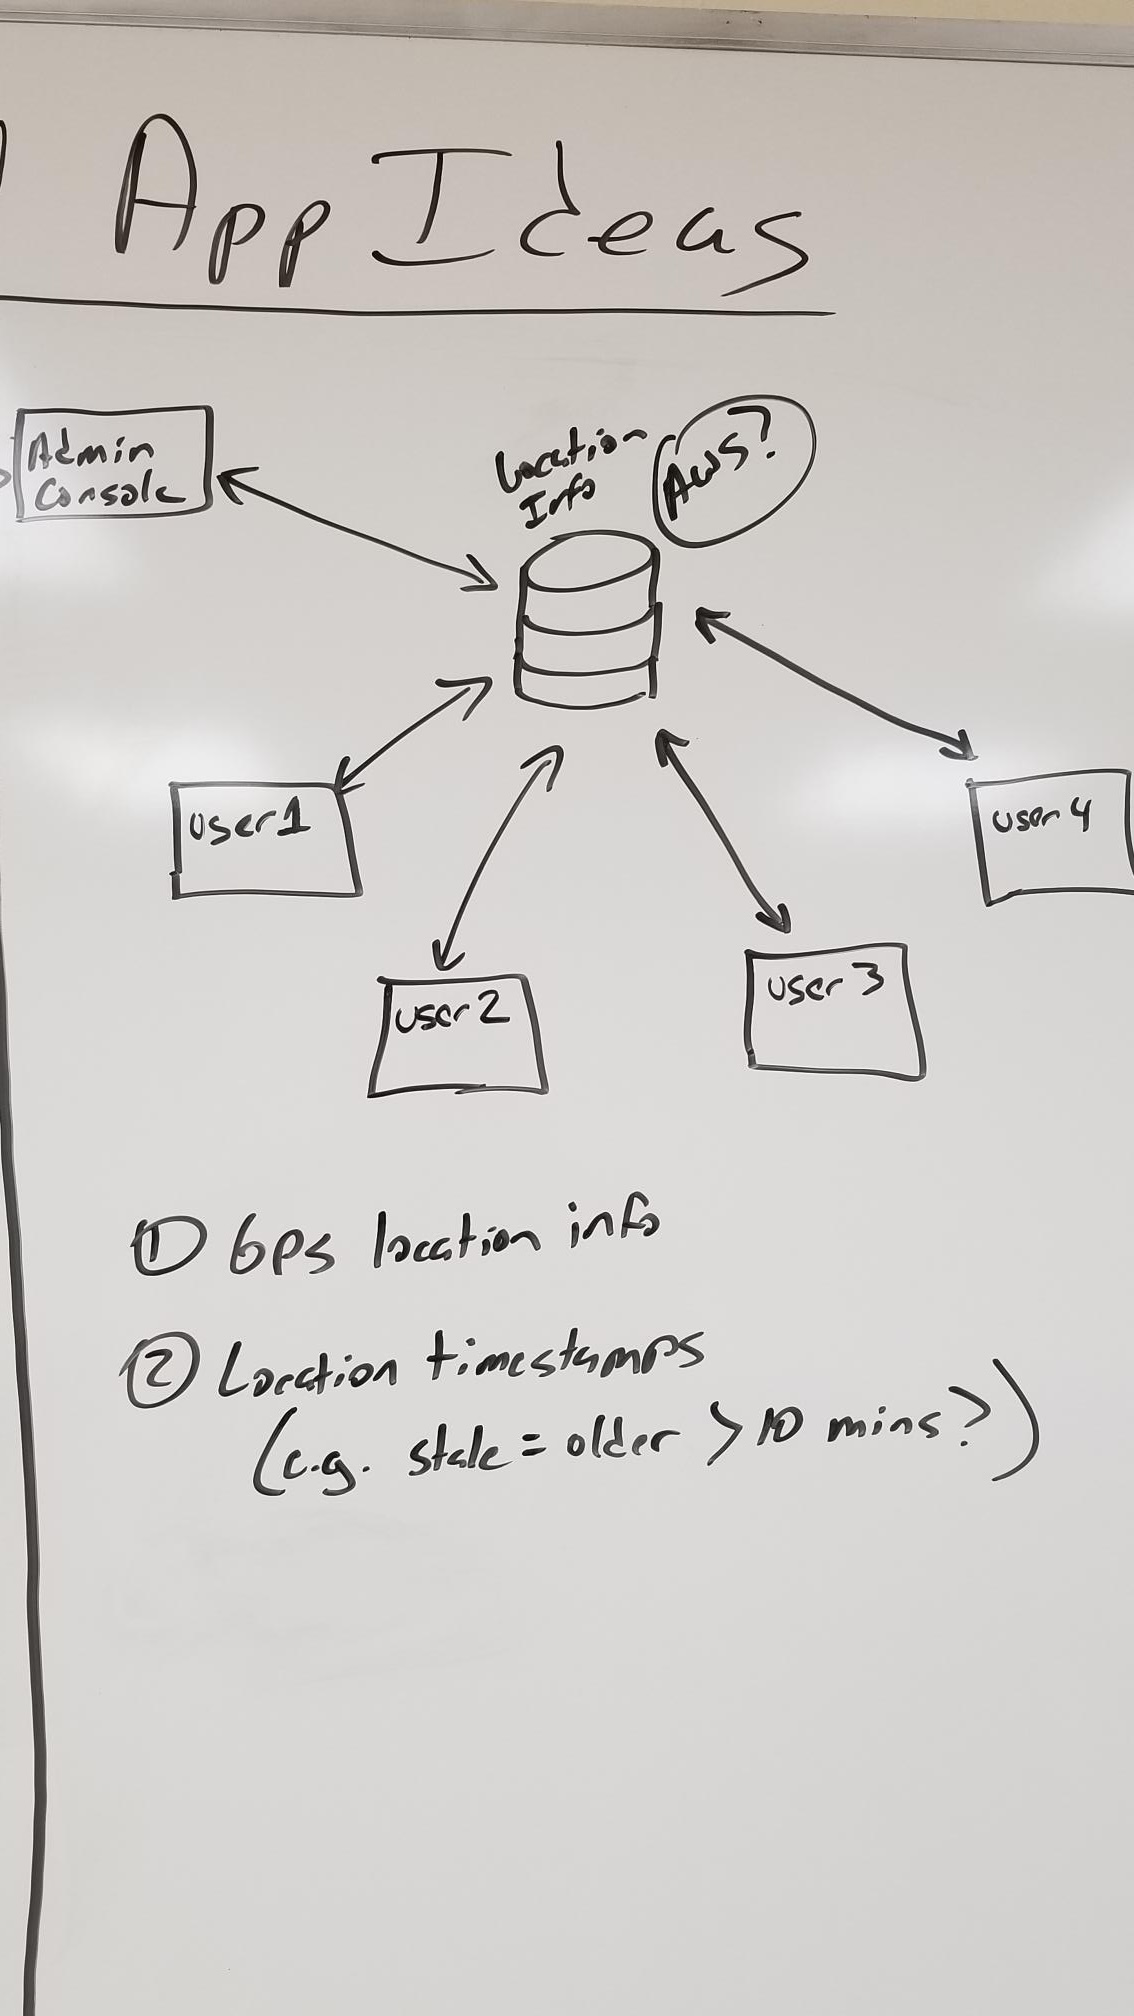 App Ideas
Admin
Console
Location
Info
AWS?
user 1
user 2
user 3
user 4
① GPS location info
② Location timestamps
(e.g. stale = older > 10 mins?)